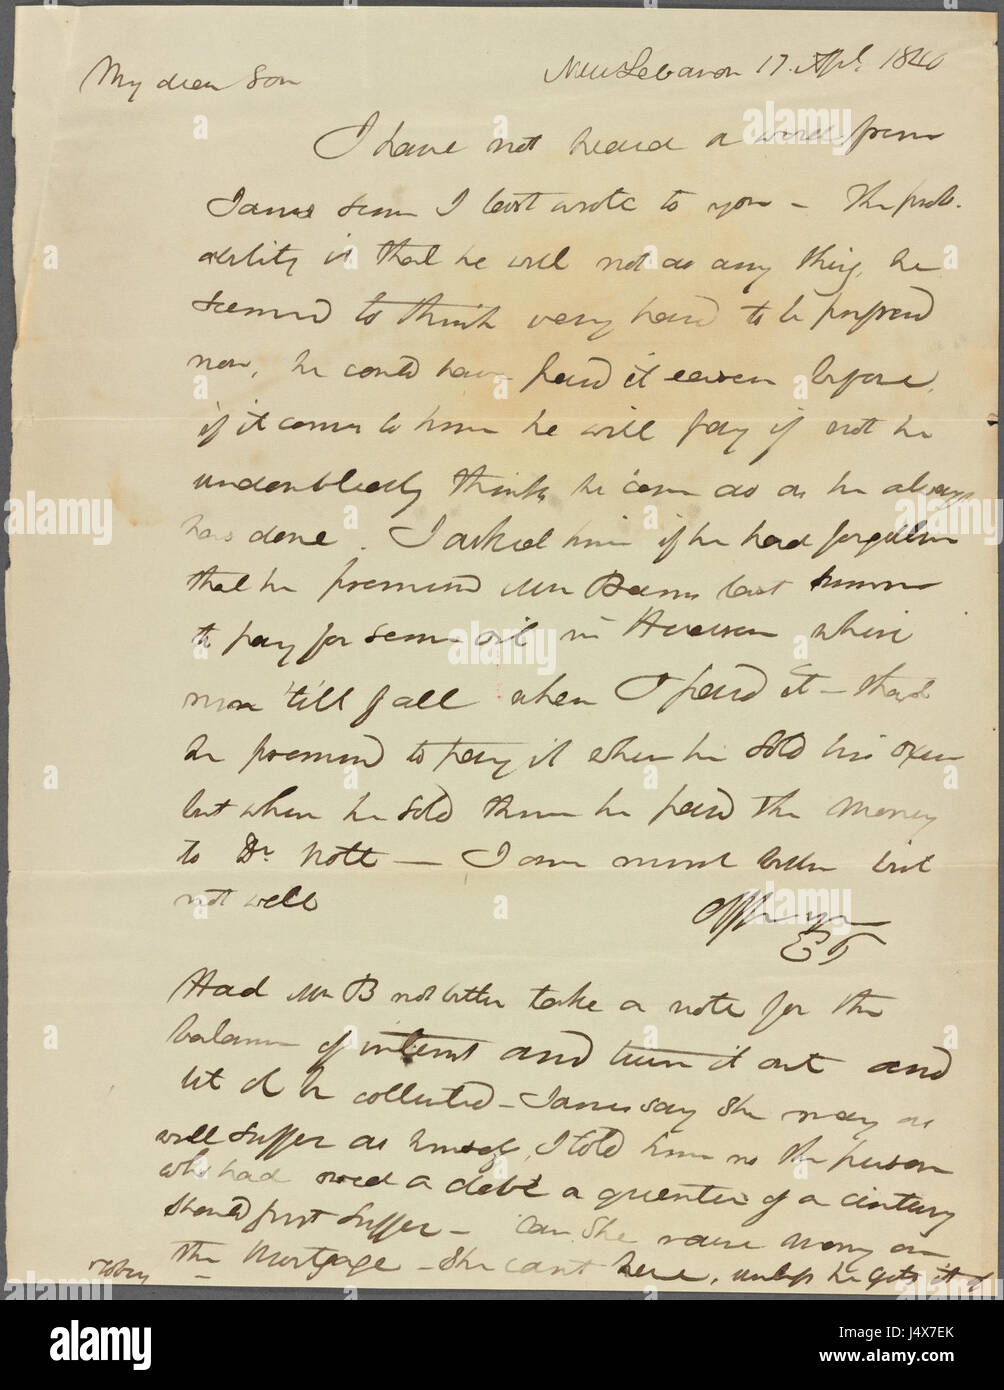 New Lebanon 17. Apl. 1840
My dear Son
I have not heard a word from
James since I last wrote to you – The prob-
ability is that he will not do any thing, he
seemed to think very hard to be pressed
now, he could have paid it easier before,
if it comes to him he will pay if not he
undoubtedly thinks he can do as he always
has done. I asked him if he had forgotten
that he promised Mr last
to pay for some oil in
'till fall when I paid it – that
he promised to pay it when he sold his oxen
but when he sold them he paid the money
to Dr. Nott – I am much better but
not well
E T
Had Mr B not better take a note for the
balance of interest and turn it out and
let it be collected – James say she may as
well suffer as himself, I told him no the person
who had owed a debt a quarter of a century
should first suffer – can she raise money on
the Mortgage – she can't here, unless he gets it of
Toby
alamy
a
alamy stock photo
Image ID: J4X7EK
www.alamy.com